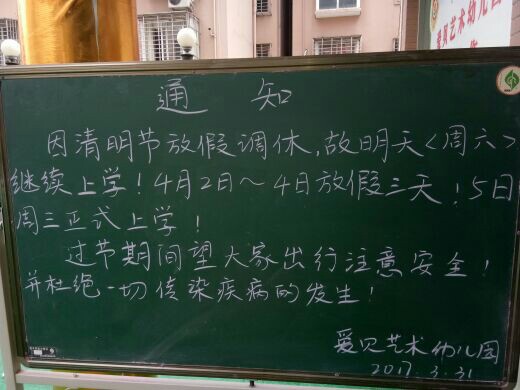 爱贝艺术幼儿园
通 知
因清明节放假调休,故明天<周六>
继续上学!4月2日~4日放假三天!5日
周三正式上学!
过节期间望大家出行注意安全!
并杜绝一切传染疾病的发生!
爱贝艺术幼儿园
2017.3.31